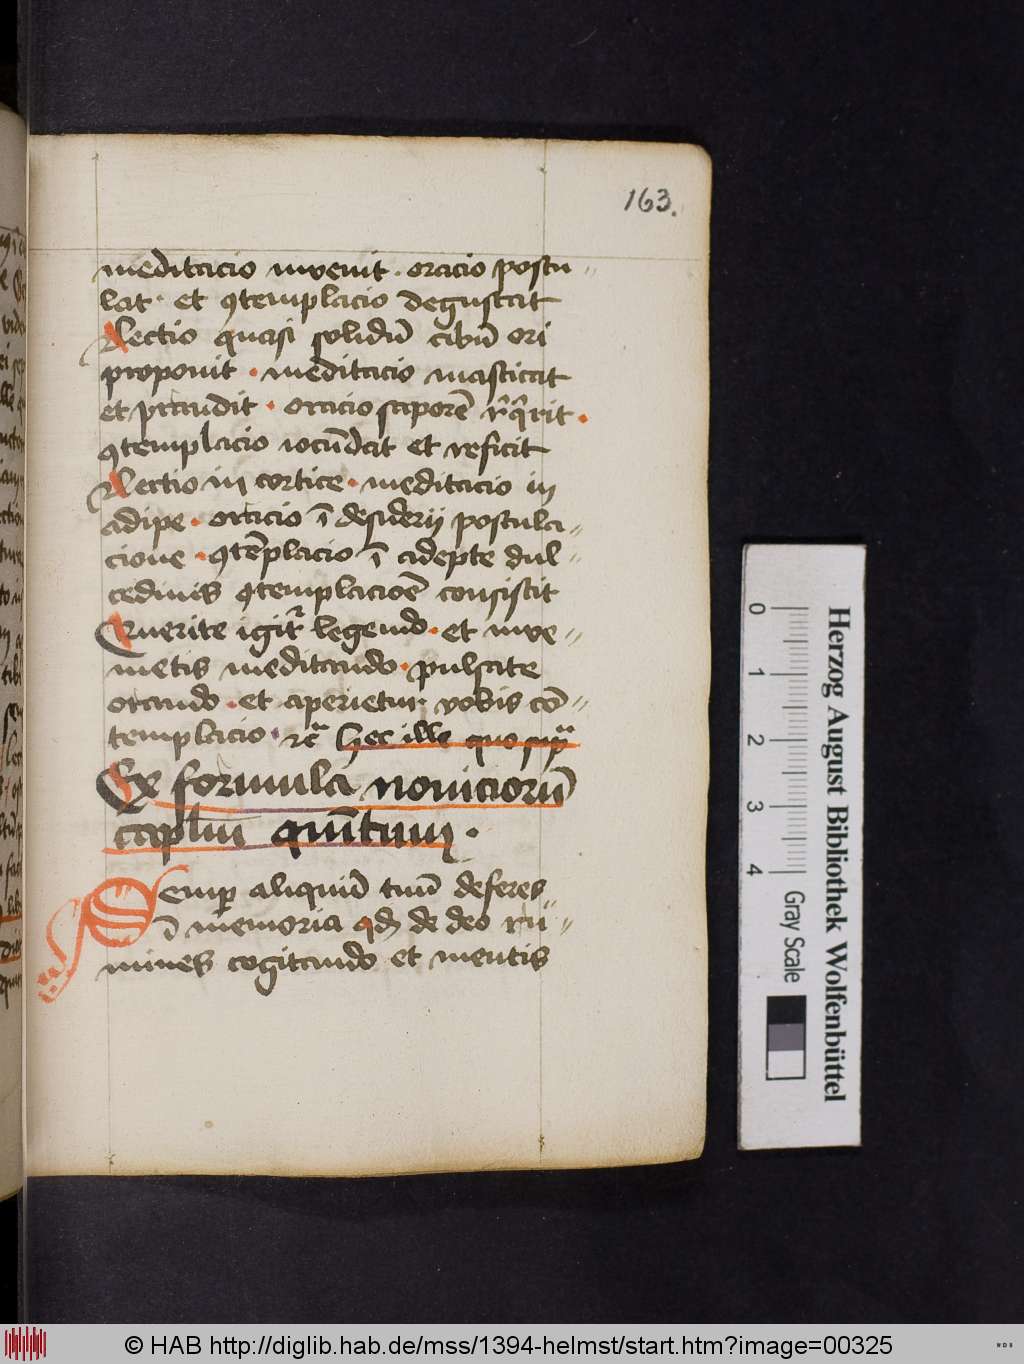 163.
meditacio invenit . oracio postu-
lat . et ꝯtemplacio degustat
Lectio quasi solidū cibū ori
proponit . meditacio masticat
et prandit . oracio saporē rͥqͥrit .
ꝯtemplacio iocūdat et reficit
Lectio in cortice . meditacio in
adipe . oracio ī desiderij postula-
cione . ꝯtēplacio ī adepte dul-
cedinis ꝯtemplacioē consistit
Querite igitᷣ legendo . et inve-
nietis meditando . pulsate
orando . et aperietur vobis cō-
templacio . ⁊c̄ hec ille quo supᷓ
Ex formula noviciorū
caplm̄ quītum .
Semꝑ aliquid tecū deferes
ī memoria qd de deo ru-
mines cogitando et mentis
0 1 2 3 4
Gray Scale
Herzog August Bibliothek Wolfenbüttel
© HAB http://diglib.hab.de/mss/1394-helmst/start.htm?image=00325